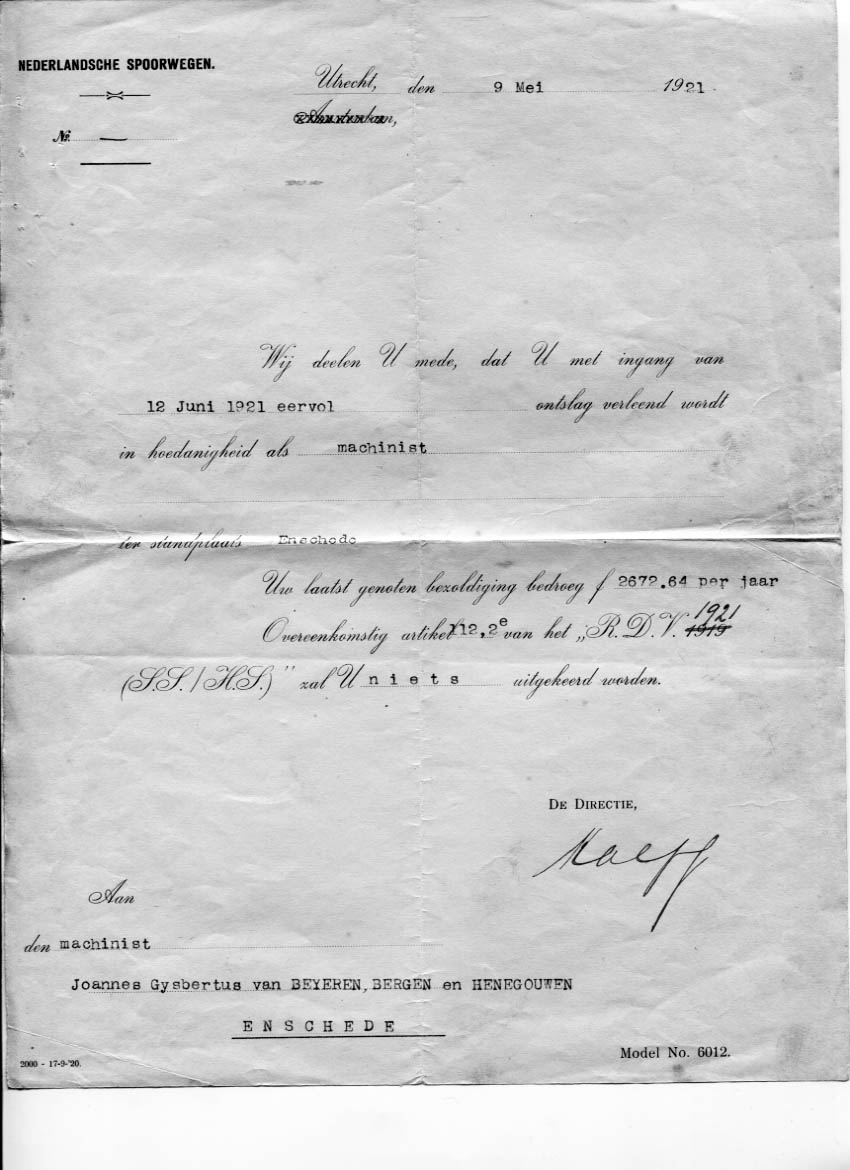 NEDERLANDSCHE SPOORWEGEN.
Utrecht, den 9 Mei 1921.
№ —
Wij deelen U mede, dat U met ingang van
12 Juni 1921 eervol ontslag verleend wordt
in hoedanigheid als machinist
ter standplaats Enschede
Uw laatst genoten bezoldiging bedroeg f 2672.64 per jaar
1921
Overeenkomstig artikel 112,2e van het „R. D. V. 1919
(S.S. / H.S.)" zal U niets uitgekeerd worden.
DE DIRECTIE,
Aan
den machinist
Joannes Gysbertus van BEYEREN, BERGEN en HENEGOUWEN
ENSCHEDE
2000 - 17-9-'20.
Model No. 6012.